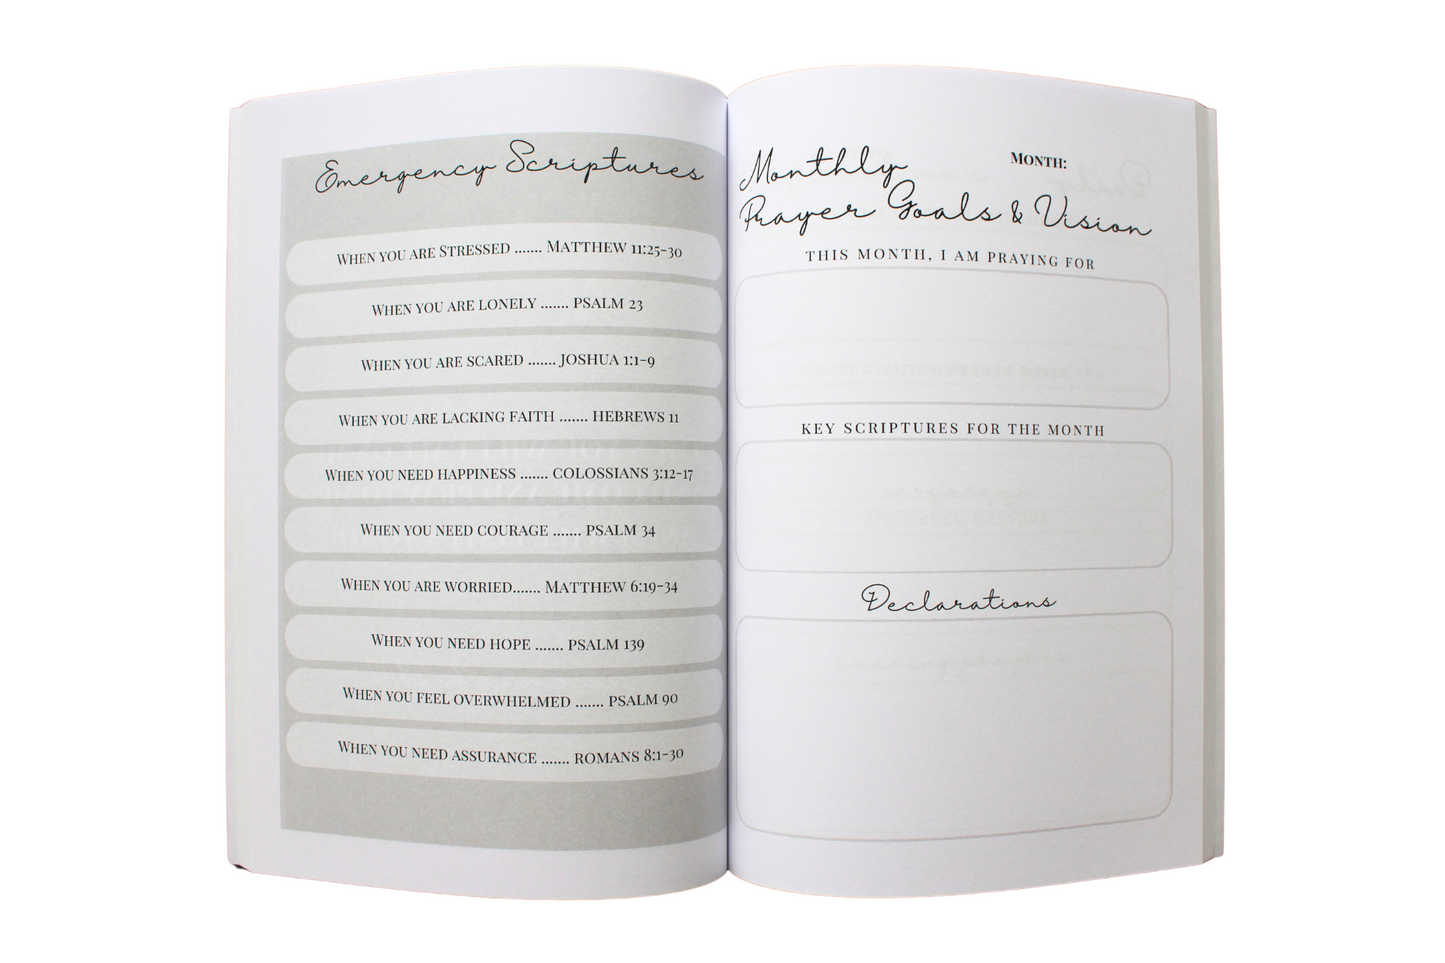 Emergency Scriptures
When you are Stressed ....... Matthew 11:25-30
When you are lonely ....... Psalm 23
When you are scared ....... Joshua 1:1-9
When you are lacking faith ....... Hebrews 11
When you need happiness ....... Colossians 3:12-17
When you need courage ....... Psalm 34
When you are worried....... Matthew 6:19-34
When you need hope ....... Psalm 139
When you feel overwhelmed ....... Psalm 90
When you need assurance ....... Romans 8:1-30
Monthly
Month:
Prayer Goals & Vision
THIS MONTH, I AM PRAYING FOR
KEY SCRIPTURES FOR THE MONTH
Declarations